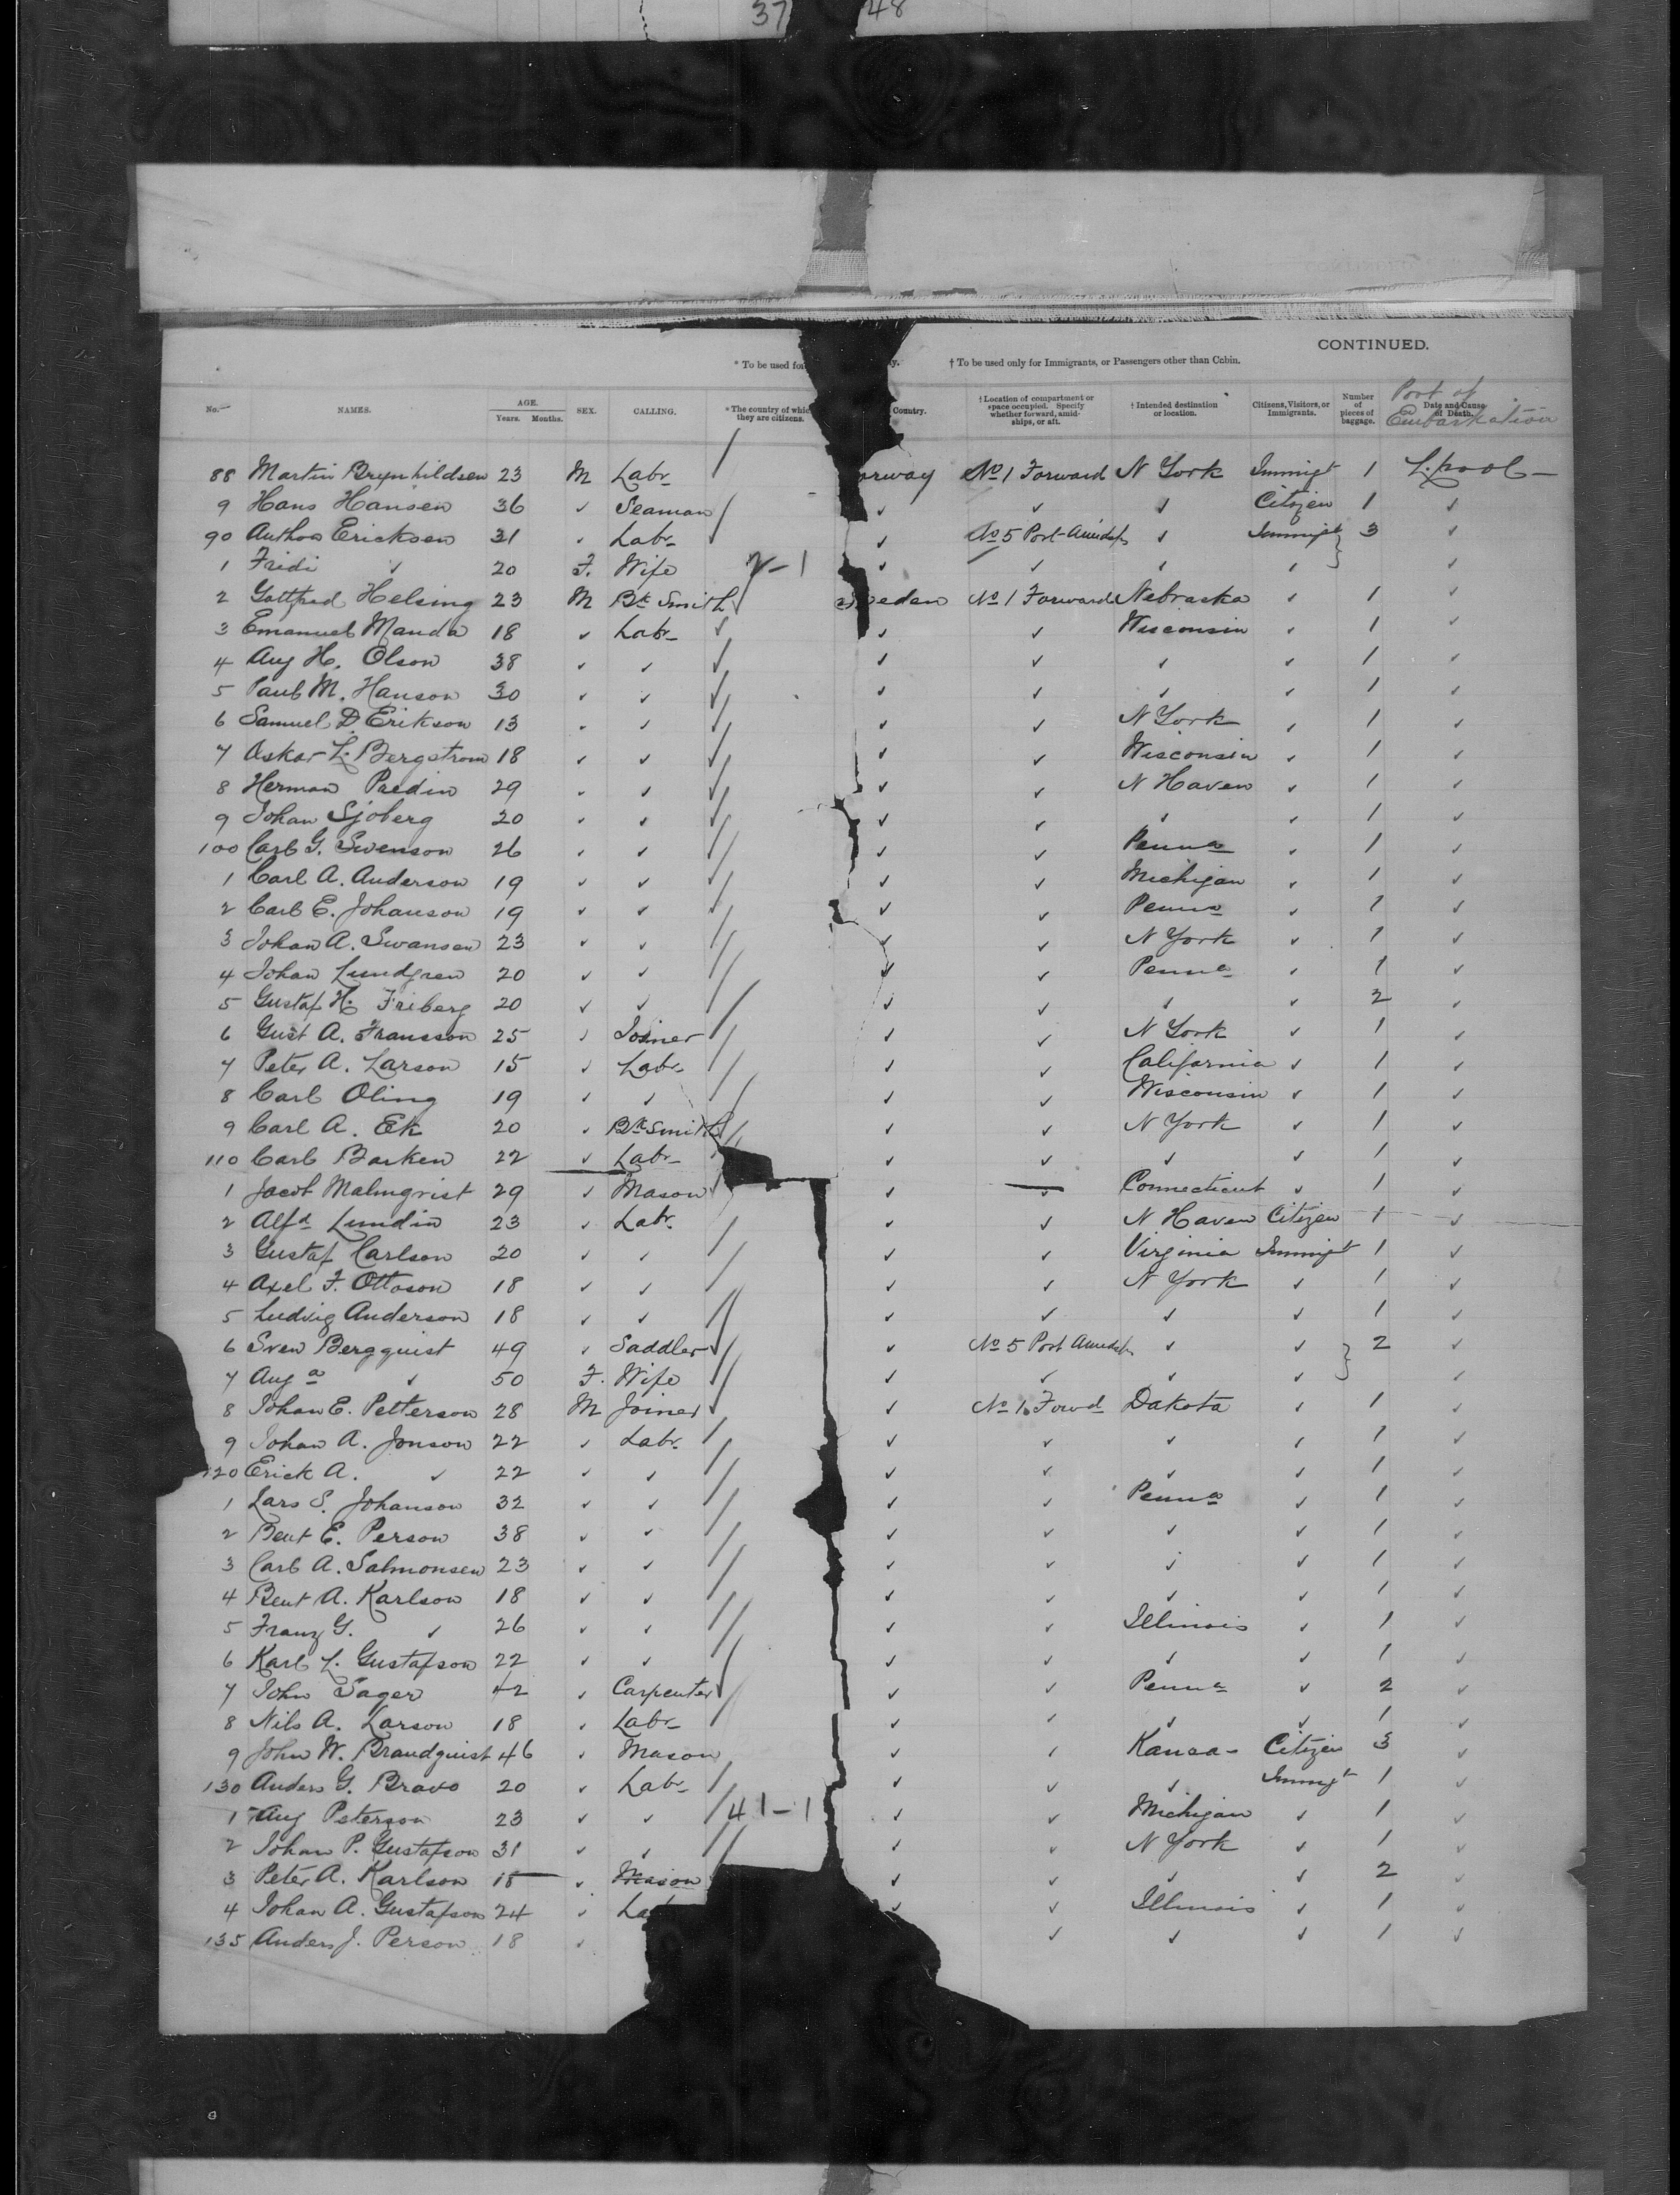 37 48
CONTINUED.
* To be used for y. † To be used only for Immigrants, or Passengers other than Cabin.
No. NAMES. AGE. Years. Months. SEX. CALLING. * The country of which they are citizens. Country. † Location of compartment or space occupied. Specify whether forward, amidships, or aft. † Intended destination or location. Citizens, Visitors, or Immigrants. Number of pieces of baggage. Date and Cause of Death. Port of Embarkation
88 Martin Brynhildsen 23 M Labr orway No 1 Forward N York Immigt 1 L.pool
9 Hans Hansen 36 ✓ Seaman ✓ ✓ ✓ Citizen 1 ✓
90 Ericksen 31 ✓ Labr ✓ No 5 Port Amidsh ✓ Immigt 3 ✓
1 Fridi ✓ 20 F. Wife 2-1 ✓ ✓ ✓ ✓ ✓
2 Gottfred Helsing 23 M Bk Smith eden No 1 Forward Nebraska ✓ 1 ✓
3 Emanuel Manda 18 ✓ Labr ✓ ✓ ✓ Wisconsin ✓ 1 ✓
4 Aug H. Olson 38 ✓ ✓ ✓ ✓ ✓ ✓ ✓ 1 ✓
5 Paul M. Hanson 30 ✓ ✓ ✓ ✓ ✓ ✓ ✓ 1 ✓
6 Samuel D. Erikson 13 ✓ ✓ ✓ ✓ ✓ N York ✓ 1 ✓
7 Oskar L. Bergstrom 18 ✓ ✓ ✓ ✓ ✓ Wisconsin ✓ 1 ✓
8 Herman Paedin 29 ✓ ✓ ✓ ✓ ✓ N Haven ✓ 1 ✓
9 Johan Sjoberg 20 ✓ ✓ ✓ ✓ ✓ ✓ ✓ 1 ✓
100 Carl G. Swenson 26 ✓ ✓ ✓ ✓ Penna ✓ 1 ✓
1 Carl A. Anderson 19 ✓ ✓ ✓ ✓ Michigan ✓ 1 ✓
2 Carl E. Johanson 19 ✓ ✓ ✓ ✓ Penna ✓ 1 ✓
3 Johan A. Swansen 23 ✓ ✓ ✓ ✓ N York ✓ 1 ✓
4 Johan Lundgren 20 ✓ ✓ ✓ ✓ Penna ✓ 1 ✓
5 Gustaf H. Friberg 20 ✓ ✓ ✓ ✓ ✓ ✓ 2 ✓
6 Gust A. Fransson 25 ✓ Joiner ✓ ✓ N York ✓ 1 ✓
7 Peter A. Larson 15 ✓ Labr ✓ ✓ California ✓ 1 ✓
8 Carl Oling 19 ✓ ✓ ✓ ✓ Wisconsin ✓ 1 ✓
9 Carl A. Ek 20 ✓ Bk Smith ✓ ✓ N York ✓ 1 ✓
110 Carl Barken 22 ✓ Labr ✓ ✓ ✓ ✓ 1 ✓
1 Jacob Malmqrist 29 ✓ Mason ✓ ✓ Connecticut ✓ 1 ✓
2 Alfd Lundin 23 ✓ Labr. ✓ ✓ N Haven Citizen 1 ✓
3 Gustaf Carlson 20 ✓ ✓ ✓ ✓ Virginia Immigt 1 ✓
4 Axel F. Ottoson 18 ✓ ✓ ✓ ✓ N York ✓ 1 ✓
5 Ludvig Anderson 18 ✓ ✓ ✓ ✓ ✓ ✓ 1 ✓
6 Sven Bergquist 49 ✓ Saddler ✓ No 5 Port Amidsh ✓ ✓ 2 ✓
7 Auga ✓ 50 F. Wife ✓ ✓ ✓ ✓ ✓
8 Johan E. Petterson 28 M Joiner ✓ No 1 Forwd Dakota ✓ 1 ✓
9 Johan A. Jonson 22 ✓ Labr. ✓ ✓ ✓ ✓ 1 ✓
120 Erick A. ✓ 22 ✓ ✓ ✓ ✓ ✓ ✓ 1 ✓
1 Lars S. Johanson 32 ✓ ✓ ✓ ✓ Penna ✓ 1 ✓
2 Bent E. Person 38 ✓ ✓ ✓ ✓ ✓ ✓ 1 ✓
3 Carl A. Salmonsen 23 ✓ ✓ ✓ ✓ ✓ ✓ 1 ✓
4 Bent A. Karlson 18 ✓ ✓ ✓ ✓ ✓ ✓ 1 ✓
5 Franz G. ✓ 26 ✓ ✓ ✓ ✓ Illinois ✓ 1 ✓
6 Karl L. Gustafson 22 ✓ ✓ ✓ ✓ ✓ ✓ 1 ✓
7 John Sager 42 ✓ Carpenter ✓ ✓ Penna ✓ 2 ✓
8 Nils A. Larson 18 ✓ Labr ✓ ✓ ✓ ✓ 1 ✓
9 John W. Brandquist 46 ✓ Mason ✓ ✓ Kansas Citizen 3 ✓
130 Anders G. Bravo 20 ✓ Labr ✓ ✓ ✓ Immigt 1 ✓
1 Aug Peterson 23 ✓ ✓ 41-1 ✓ ✓ Michigan ✓ 1 ✓
2 Johan P. Gustafson 31 ✓ ✓ ✓ ✓ N York ✓ 1 ✓
3 Peter A. Karlson 18 ✓ Mason ✓ ✓ ✓ ✓ 2 ✓
4 Johan A. Gustafson 24 ✓ Lab ✓ ✓ Illinois ✓ 1 ✓
135 Anders J. Person 18 ✓ ✓ ✓ ✓ 1 ✓